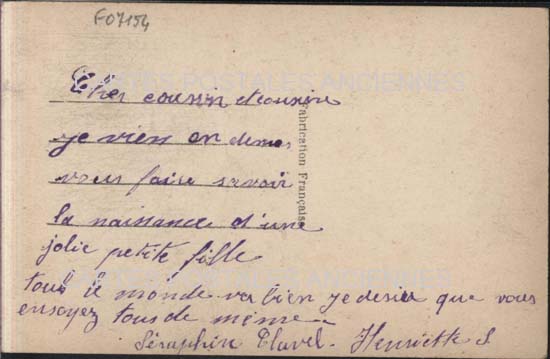 F07154
CARTES POSTALES ANCIENNES
Cher cousin et cousine
je vien en demes
vous faire savoir
la naissance d'une
jolie petite fille
tous le monde va bien je desire que vous
ensoyez tous de même
Séraphin Clavel. Henriette S
Fabrication Française